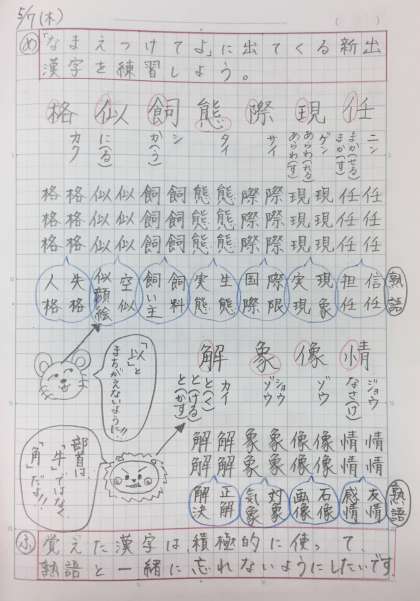 5/7(木)
め「なまえつけてよ」に出てくる新出
漢字を練習しよう。
任 ニン まか(せる) まか(す)
現 ゲン あらわ(れる) あらわ(す)
際 サイ
態 タイ
飼 シ か(う)
似 に(る)
格 カク
任任 任任 任任
現現 現現 現現
際際 際際 際際
態態 態態 態態
飼飼 飼飼 飼飼
似似 似似 似似
格格 格格 格格
熟語
信任 担任
現象 実現
際限 国際
生態 実態
飼料 飼い主
空似 似顔絵
失格 人格
情 ジョウ なさ(け)
像 ゾウ
象 ショウ ゾウ
解 カイ と(く) と(ける) と(かす)
「以」と
まちがえないように!!
部首は
「牛」ではなく
「角」だよ!!
情情 情情
像像 像像
象象 象象
解解 解解
熟語
友情 感情
石像 画像
対象 気象
正解 解決
ふ 覚えた漢字は、積極的に使って、
熟語と一緒に忘れないようにしたいです。